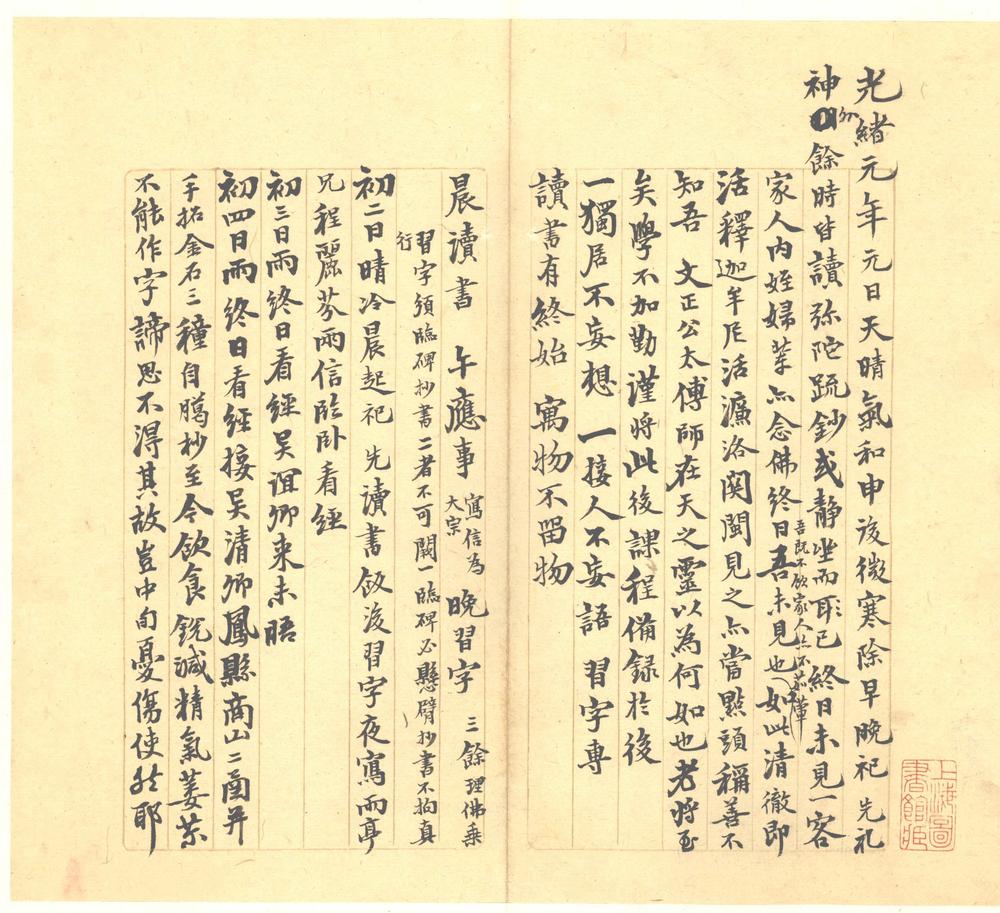 光緒元年元日天晴氣和申後微寒除早晚祀 先礼
神外餘時皆讀弥陀疏鈔或静坐而已終日未見一客
家人内姪婦輩亦念佛終日吾未見也如此清徹即
吾既不飲家人亦不茹葷
活釋迦牟尼活濂洛関閩見之亦當點頭稱善不
知吾 文正公太傅師在天之靈以為何如也老將至
矣學不加勤謹將此後課程備録於後
一獨居不妄想 一接人不妄語 習字專
讀書有終始 寓物不畱物
晨讀書 午應事 寫信為大宗 晚習字 三餘理佛乗
習字須臨碑抄書二者不可闕一臨碑必懸臂抄書不拘真
行
初二日晴冷晨起祀 先讀書飯後習字夜寫雨亭
兄程麗芬兩信臨卧看經
初三日雨終日看經吴誼卿来未晤
初四日雨終日看經接吴清卿鳳縣商山二函并
手拓金石三種自臈杪至今飲食鋭減精氣萎苶
不能作字諦思不得其故豈中年憂傷使然耶
上海圖
書館藏